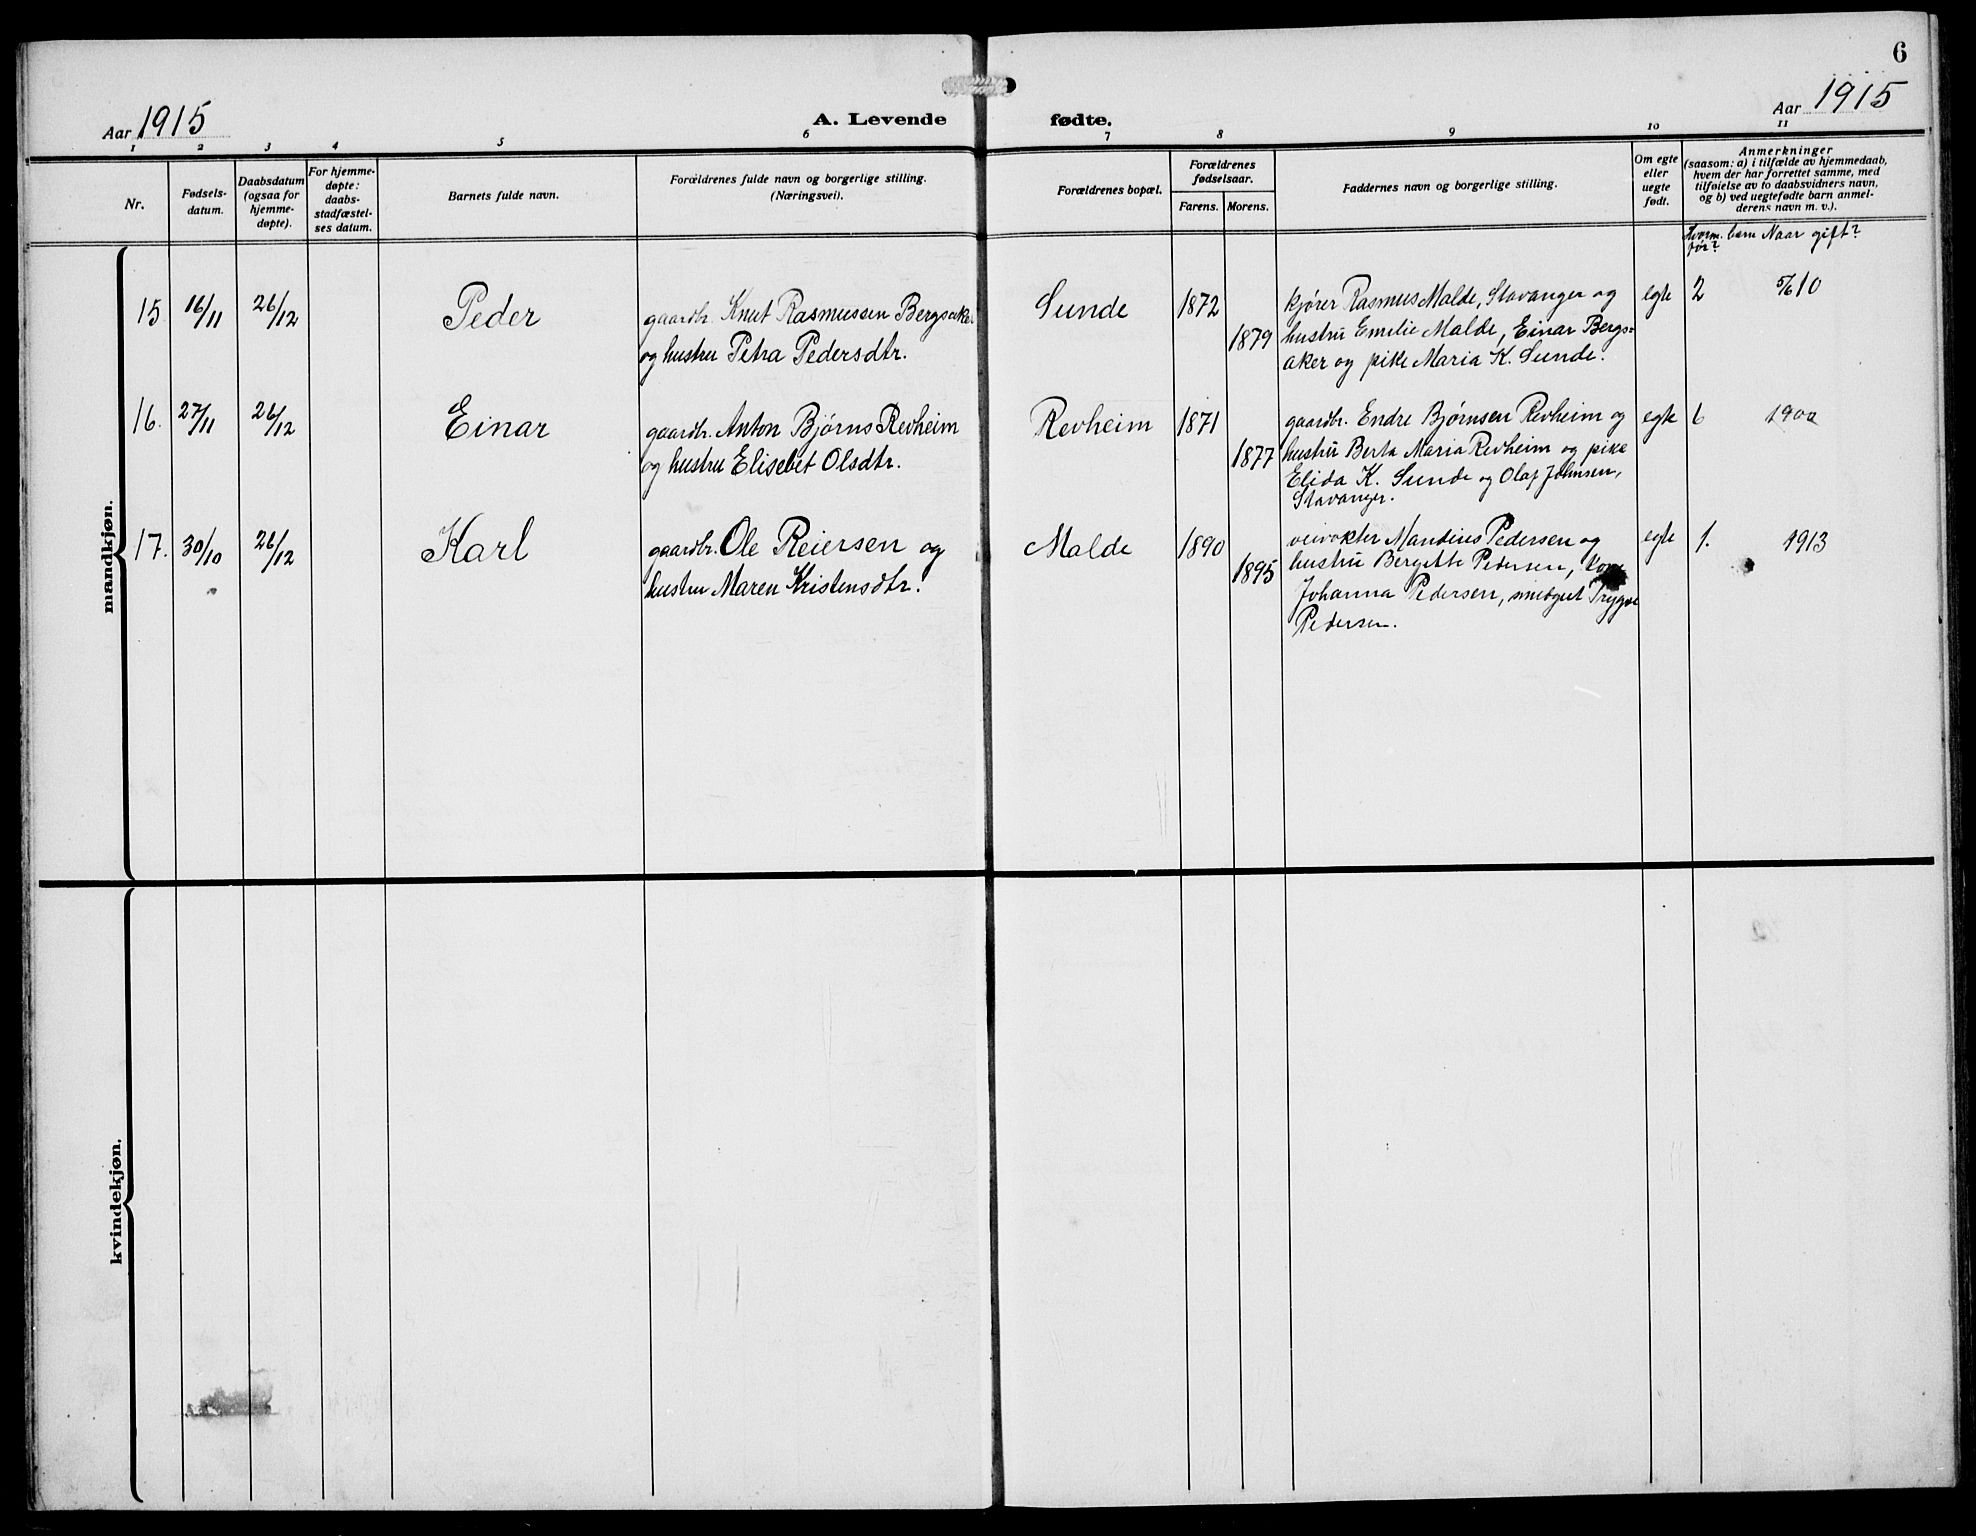 6
Aar 1915
A. Levende fødte.
Aar 1915
1 2 3 4 5 6 7 8 9 10 11
Nr.
Fødsels-
datum.
Daabsdatum
(ogsaa for
hjemme-
døpte).
For hjemme-
døpte:
daabs-
stadfæstel-
ses datum.
Barnets fulde navn.
Forældrenes fulde navn og borgerlige stilling.
(Næringsvei).
Forældrenes bopæl.
Forældrenes
fødselsaar.
Farens. Morens.
Faddernes navn og borgerlige stilling.
Om egte
eller
uegte
født.
Anmerkninger
(saasom: a) i tilfælde av hjemmedaab,
hvem der har forrettet samme, med
tilføielse av to daabsvidners navn,
og b) ved uegtefødte barn anmel-
derens navn m. v.).
Hvorm. barn Naar gift?
før?
mandkjøn.
15. 16/11 26/12 Peder
gaardbr. Knut Rasmussen Bergsaker
og hustru Petra Pedersdtr.
Sunde 1872
1879
kjører Rasmus Malde, Stavanger og
hustru Emilie Malde, Einar Bergs-
aker og pike Maria K. Sunde.
egte 2 5/6 10
16. 27/11 26/12 Einar
gaardbr. Anton Bjørns Revheim
og hustru Elisebet Olsdtr.
Revheim 1871
1877
gaardbr. Endre Bjørnsen Revheim og
hustru Berta Maria Revheim og pike
Elida K. Sunde og Olaf Johnsen,
Stavanger.
egte 6 1900
17. 30/10 26/12 Karl
gaardbr. Ole Reiersen og
hustru Maren Kristensdtr.
Malde 1890
1895
veivokter Mandius Pedersen og
hustru Bergitte Pedersen,
Johanna Pedersen, smedgut Trygve
Pedersen.
egte 1. 1913
kvindekjøn.